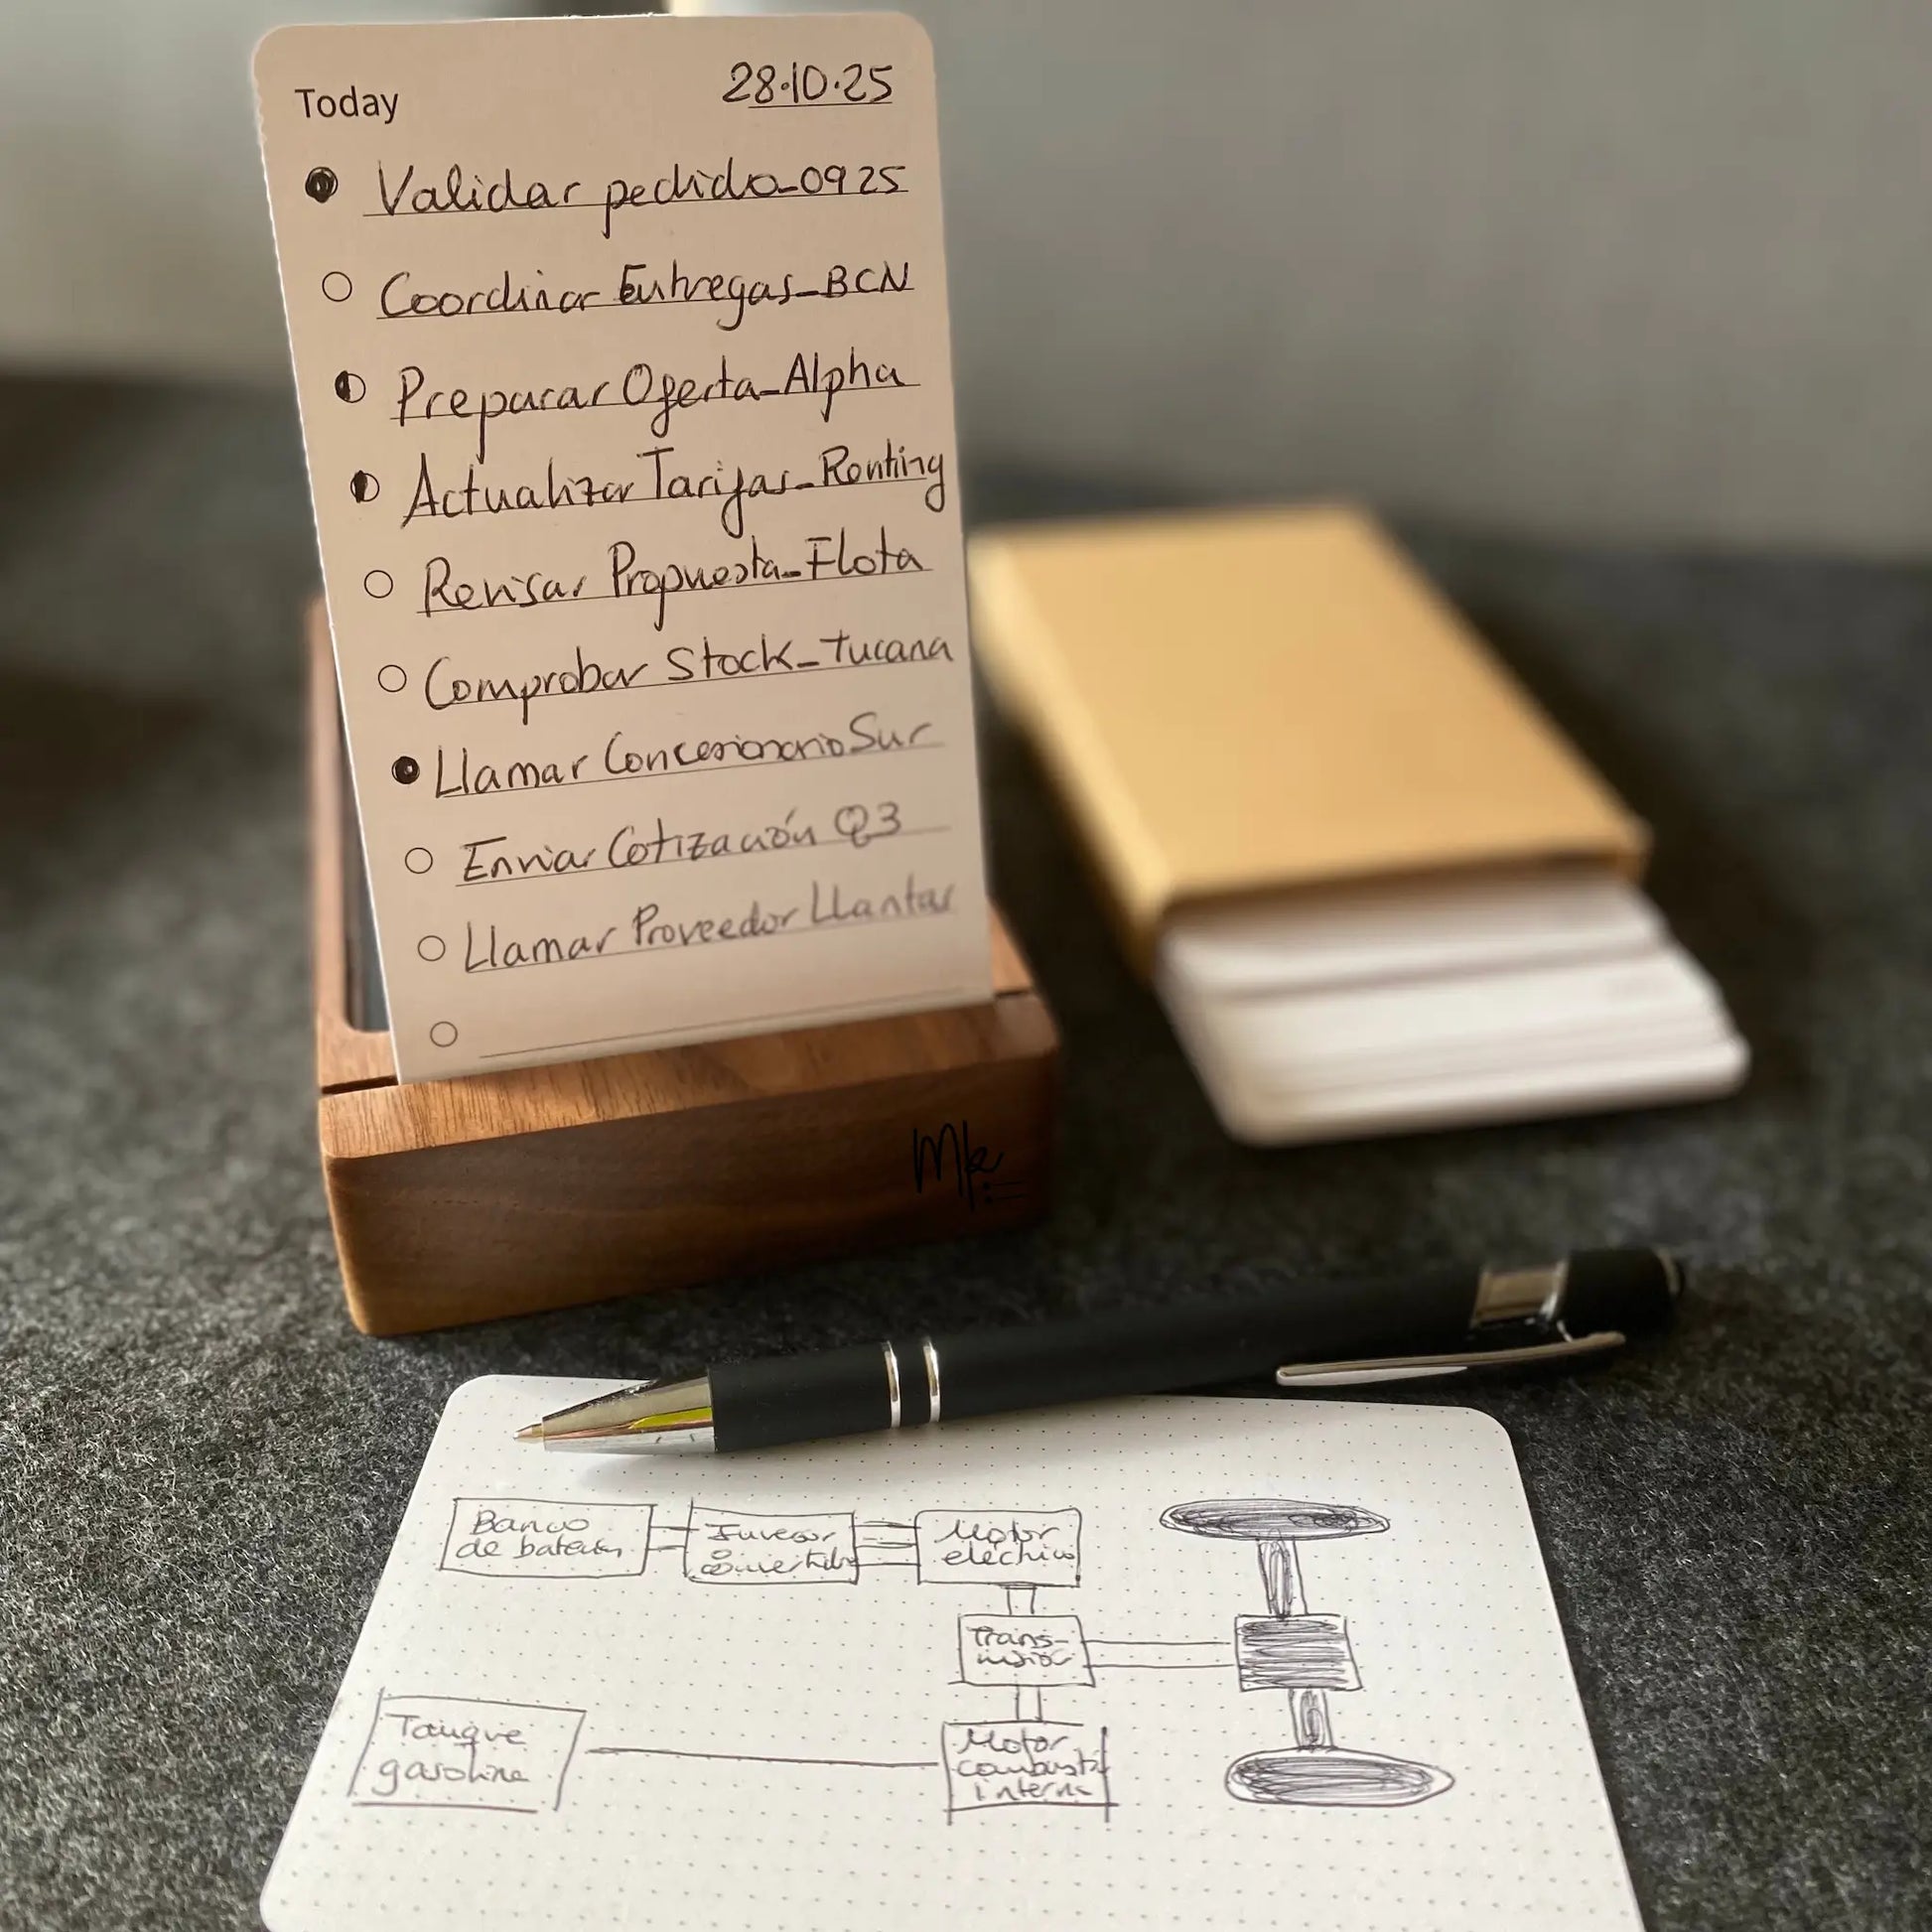 Today
28.10.25
Validar pedido_0925
Coordinar Entregas_BCN
Preparar Oferta_Alpha
Actualizar Tarifas_Renting
Revisar Propuesta_Flota
Comprobar Stock_Tucana
Llamar Concesionario Sur
Enviar Cotización Q3
Llamar Proveedor Llantas
Banco
de baterías
Inversor
o
convertidor
Motor
eléctrico
Trans-
misión
Tanque
gasolina
Motor
combustión
interna